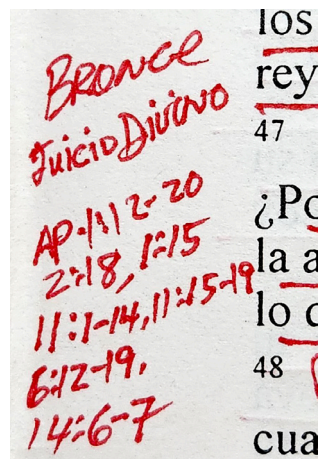 BRONCE
Juicio Divino
AP. 1:12-20
2:18, 1:15
11:1-14, 11:15-19
6:12-19,
14:6-7
los
rey
47
¿Po
la a
lo
48
cua